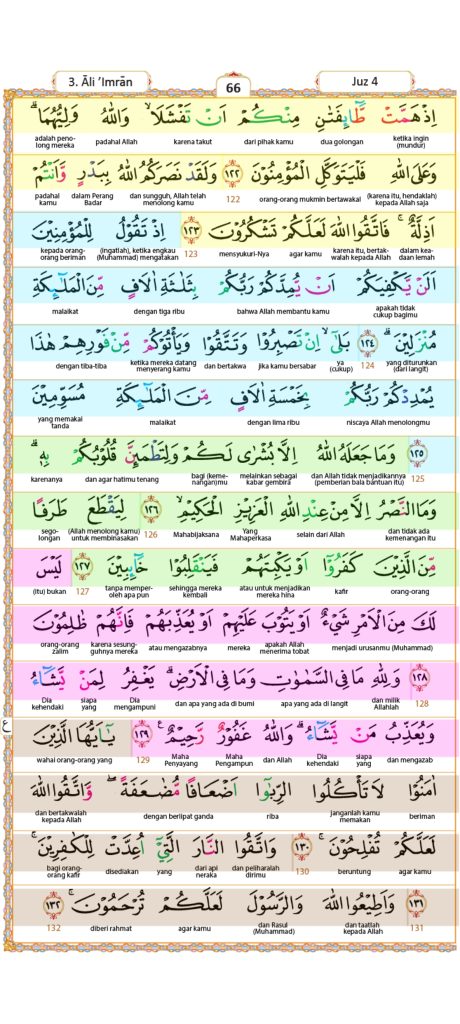 3. Āli 'Imrān
66
Juz 4
اِذْ هَمَّتْ طَّاۤىِٕفَتٰنِ مِنْكُمْ اَنْ تَفْشَلَاۙ وَاللّٰهُ وَلِيُّهُمَاۗ
ketika ingin (mundur) dua golongan dari pihak kamu karena takut padahal Allah adalah penolong mereka
وَعَلَى اللّٰهِ فَلْيَتَوَكَّلِ الْمُؤْمِنُوْنَ ١٢٢ وَلَقَدْ نَصَرَكُمُ اللّٰهُ بِبَدْرٍ وَّاَنْتُمْ
(karena itu, hendaklah) kepada Allah saja orang-orang mukmin bertawakal 122 dan sungguh, Allah telah menolong kamu dalam Perang Badar padahal kamu
اَذِلَّةٌۚ فَاتَّقُوا اللّٰهَ لَعَلَّكُمْ تَشْكُرُوْنَ ١٢٣ اِذْ تَقُوْلُ لِلْمُؤْمِنِيْنَ
dalam keadaan lemah karena itu, bertakwalah kepada Allah agar kamu mensyukuri-Nya 123 (ingatlah), ketika engkau (Muhammad) mengatakan kepada orang-orang beriman
اَلَنْ يَّكْفِيَكُمْ اَنْ يُّمِدَّكُمْ رَبُّكُمْ بِثَلٰثَةِ اٰلَافٍ مِّنَ الْمَلٰۤىِٕكَةِ
apakah tidak cukup bagimu bahwa Allah membantu kamu dengan tiga ribu malaikat
مُنْزَلِيْنَۗ ١٢٤ بَلٰٓىۙ اِنْ تَصْبِرُوْا وَتَتَّقُوْا وَيَأْتُوْكُمْ مِّنْ فَوْرِهِمْ هٰذَا
yang diturunkan (dari langit) 124 ya (cukup) jika kamu bersabar dan bertakwa ketika mereka datang menyerang kamu dengan tiba-tiba
يُمْدِدْكُمْ رَبُّكُمْ بِخَمْسَةِ اٰلَافٍ مِّنَ الْمَلٰۤىِٕكَةِ مُسَوِّمِيْنَ
niscaya Allah menolongmu dengan lima ribu malaikat yang memakai tanda
١٢٥ وَمَا جَعَلَهُ اللّٰهُ اِلَّا بُشْرٰى لَكُمْ وَلِتَطْمَىِٕنَّ قُلُوْبُكُمْ بِهٖۗ
125 dan Allah tidak menjadikannya (pemberian bala bantuan itu) melainkan sebagai kabar gembira bagi (kemenangan)mu dan agar hatimu tenang karenanya
وَمَا النَّصْرُ اِلَّا مِنْ عِنْدِ اللّٰهِ الْعَزِيْزِ الْحَكِيْمِۙ ١٢٦ لِيَقْطَعَ طَرَفًا
dan tidak ada kemenangan itu selain dari Allah Yang Mahaperkasa Mahabijaksana 126 (Allah menolong kamu) untuk membinasakan segolongan
مِّنَ الَّذِيْنَ كَفَرُوْٓا اَوْ يَكْبِتَهُمْ فَيَنْقَلِبُوْا خَاۤىِٕبِيْنَ ١٢٧ لَيْسَ
orang-orang kafir atau untuk menjadikan mereka hina sehingga mereka kembali tanpa memperoleh apa pun 127 (itu) bukan
لَكَ مِنَ الْاَمْرِ شَيْءٌ اَوْ يَتُوْبَ عَلَيْهِمْ اَوْ يُعَذِّبَهُمْ فَاِنَّهُمْ ظٰلِمُوْنَ
menjadi urusanmu (Muhammad) apakah Allah menerima tobat mereka atau mengazabnya karena sesungguhnya mereka orang-orang zalim
١٢٨ وَلِلّٰهِ مَا فِى السَّمٰوٰتِ وَمَا فِى الْاَرْضِۗ يَغْفِرُ لِمَنْ يَّشَاۤءُ
128 dan milik Allahlah apa yang ada di langit dan apa yang ada di bumi Dia mengampuni siapa yang Dia kehendaki
ع
وَيُعَذِّبُ مَنْ يَّشَاۤءُۗ وَاللّٰهُ غَفُوْرٌ رَّحِيْمٌ ١٢٩ يٰٓاَيُّهَا الَّذِيْنَ
dan mengazab siapa yang Dia kehendaki dan Allah Maha Pengampun Maha Penyayang 129 wahai orang-orang yang
اٰمَنُوْا لَا تَأْكُلُوا الرِّبٰٓوا اَضْعَافًا مُّضٰعَفَةًۖ وَّاتَّقُوا اللّٰهَ
beriman janganlah kamu memakan riba dengan berlipat ganda dan bertakwalah kepada Allah
لَعَلَّكُمْ تُفْلِحُوْنَۚ ١٣٠ وَاتَّقُوا النَّارَ الَّتِيْٓ اُعِدَّتْ لِلْكٰفِرِيْنَۚ
agar kamu beruntung 130 dan peliharalah dirimu dari api neraka yang disediakan bagi orang-orang kafir
١٣١ وَاَطِيْعُوا اللّٰهَ وَالرَّسُوْلَ لَعَلَّكُمْ تُرْحَمُوْنَۚ ١٣٢
131 dan taatlah kepada Allah dan Rasul (Muhammad) agar kamu diberi rahmat 132